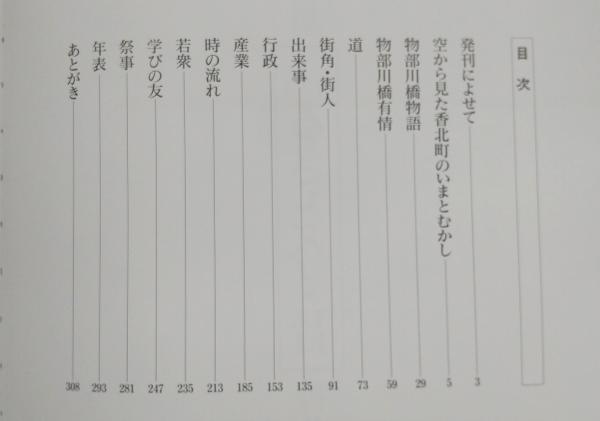 目次
発刊によせて 3
空から見た香北町のいまとむかし 5
物部川橋物語 29
物部川橋有情 59
道 73
街角・街人 91
出来事 135
行政 153
産業 185
時の流れ 213
若衆 235
学びの友 247
祭事 281
年表 293
あとがき 308